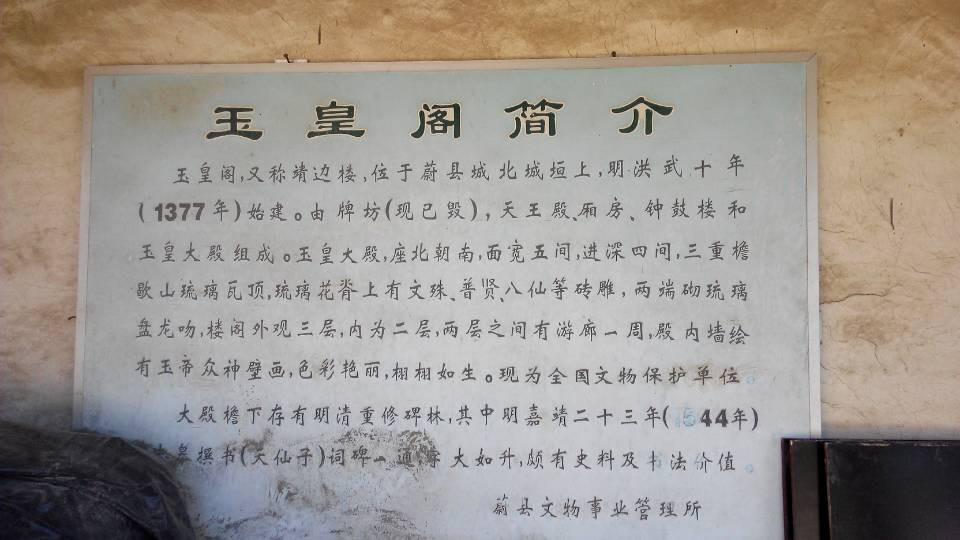 玉皇阁简介
玉皇阁,又称靖边楼,位于蔚县城北城垣上,明洪武十年
(1377年)始建。由牌坊(现已毁),天王殿、厢房、钟鼓楼和
玉皇大殿组成。玉皇大殿,座北朝南,面宽五间,进深四间,三重檐
歇山琉璃瓦顶,琉璃花脊上有文殊、普贤、八仙等砖雕,两端砌琉璃
盘龙吻,楼阁外观三层,内为二层,两层之间有游廊一周,殿内墙绘
有玉帝众神壁画,色彩艳丽,栩栩如生。现为全国文物保护单位。
大殿檐下存有明清重修碑林,其中明嘉靖二十三年(1544年)
撰书(天仙子)词碑一通,字大如升,颇有史料及书法价值。
蔚县文物事业管理所